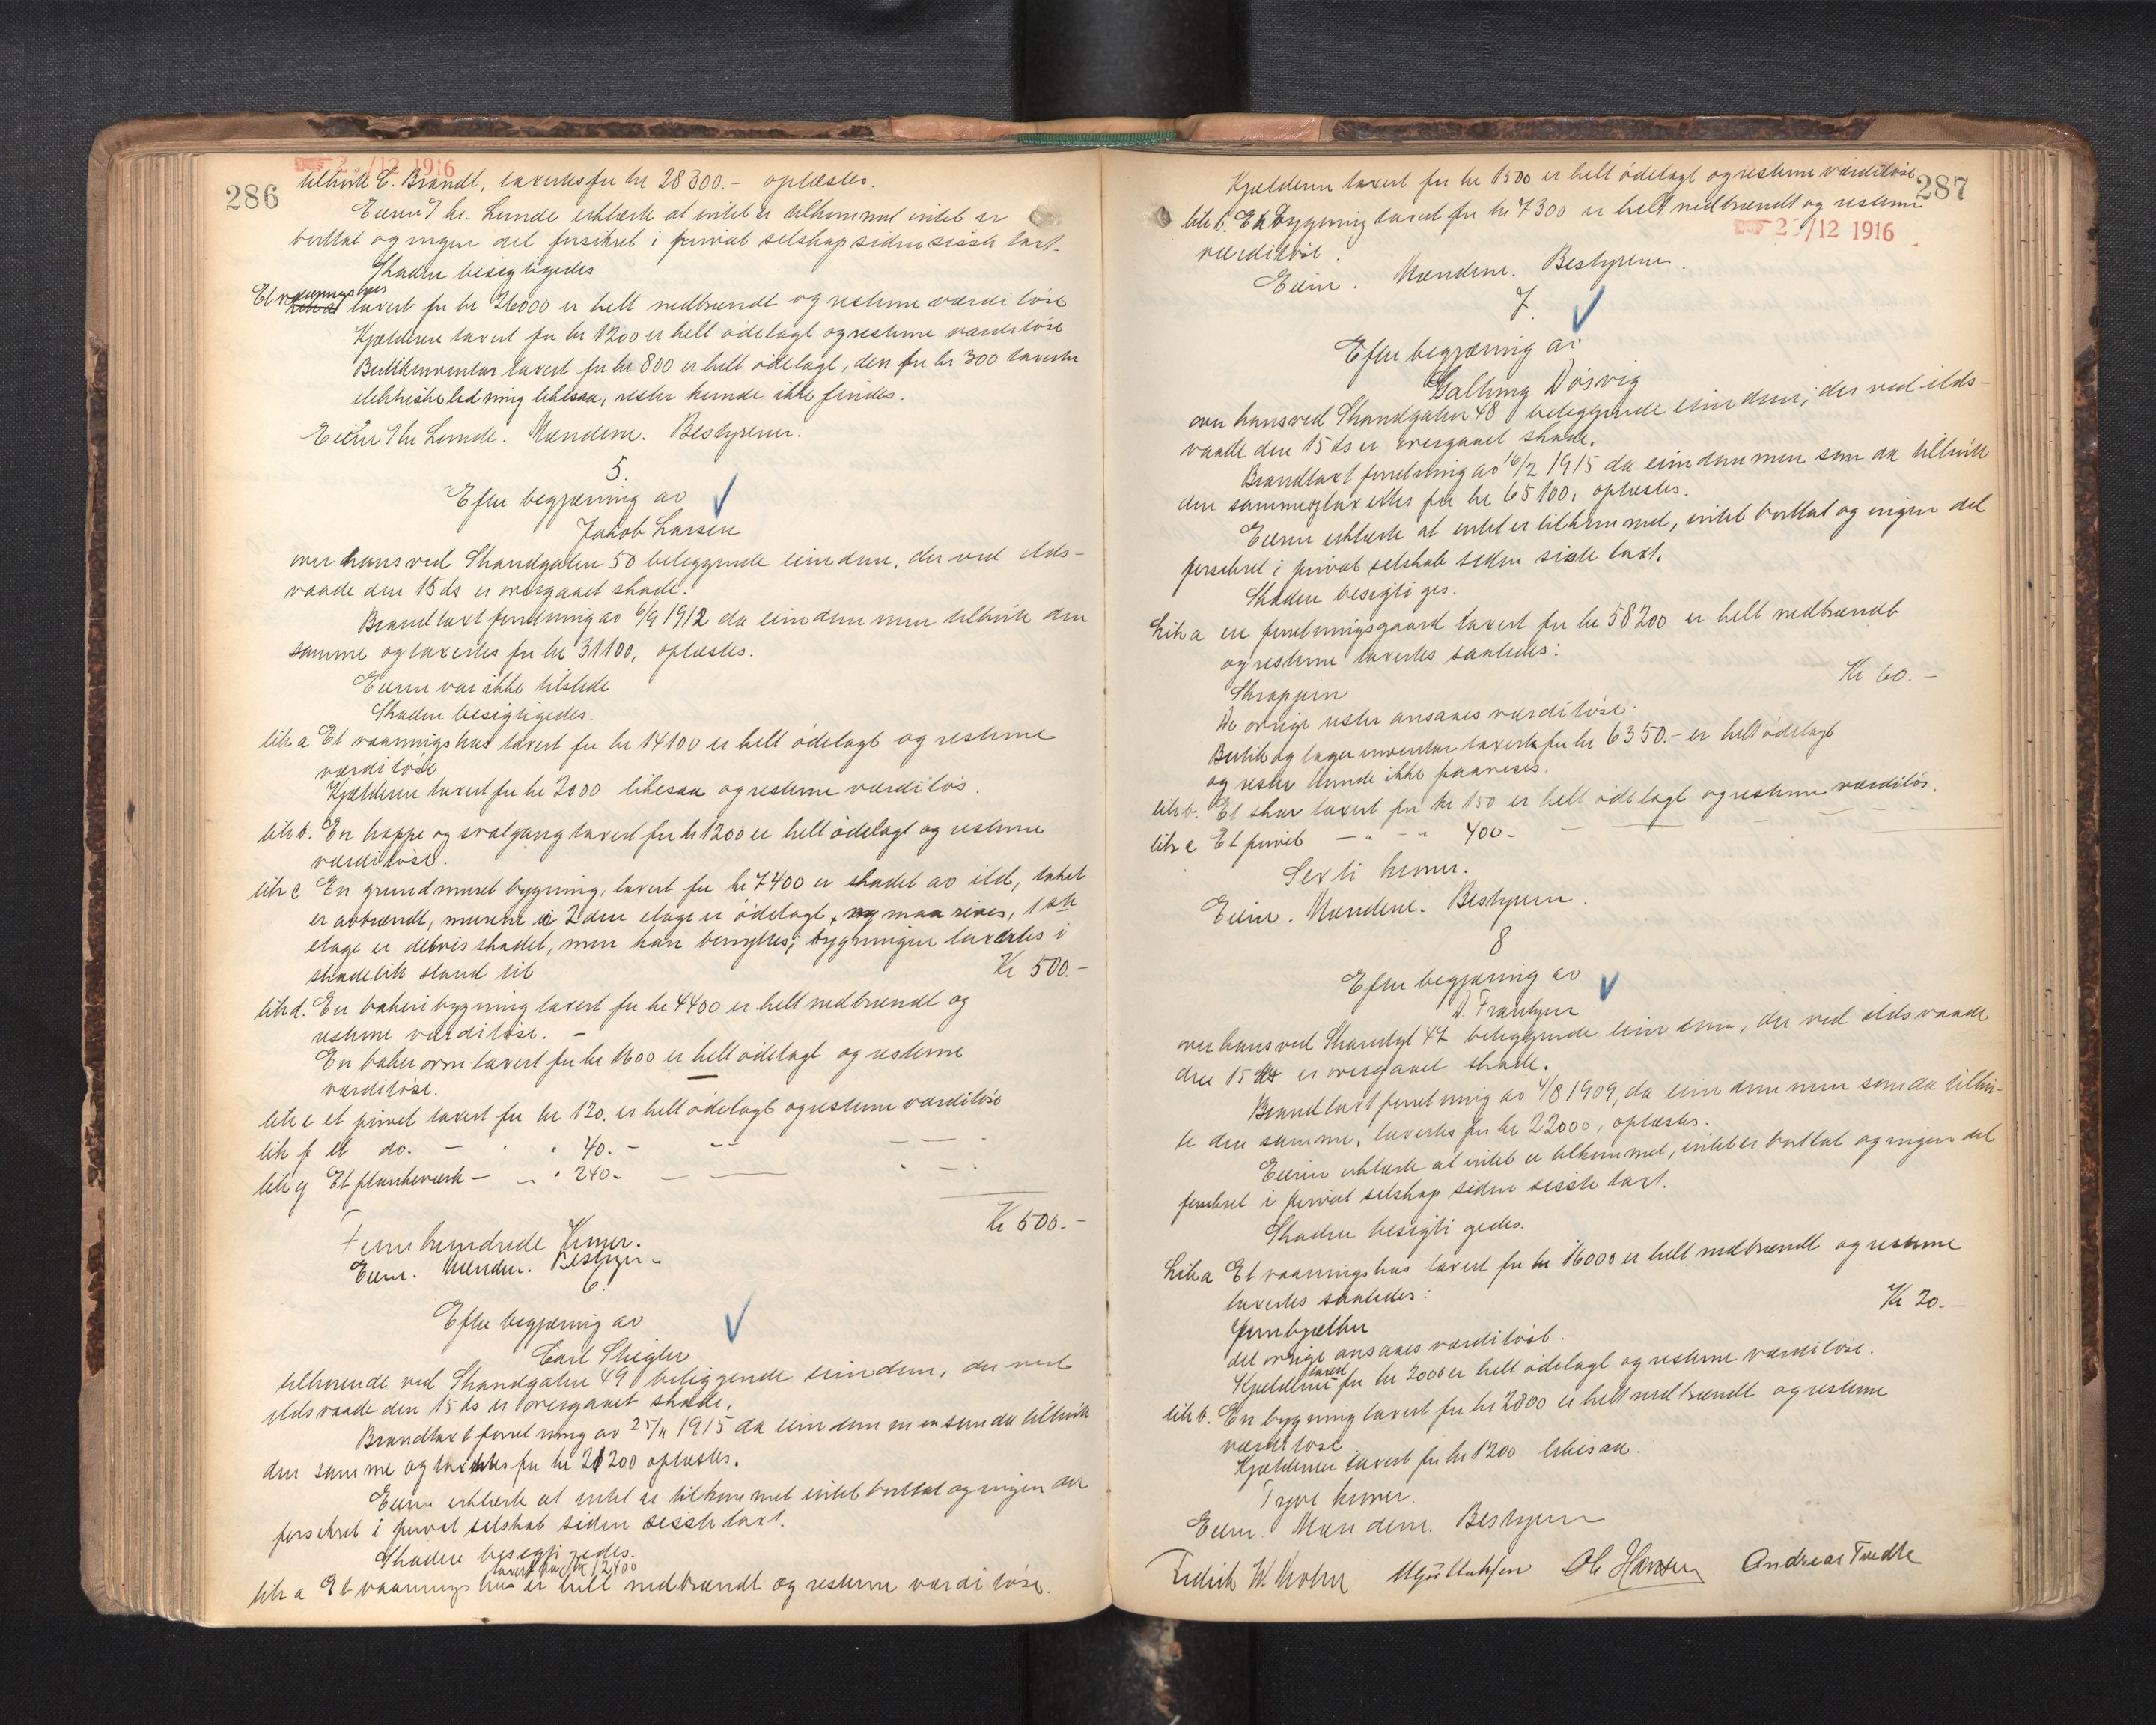 286
2 /12 1916
tilhørte C. Brandt, taxertes for kr 28300.- oplæstes.
Eieren Thr. Lunde erklærte at intet er tilkommet intet er
borttat og ingen del forsikret i privat selskap siden siste taxt.
Skaden besigtigedes
Et vaaningshus taxert for kr 26000 er helt nedbrændt og resterne værdiløse
Kjælderen taxert for kr 1200 er helt ødelagt og resterne værdiløse
Butikinventar taxert for kr 800 er helt ødelagt, den for kr 300 taxerte
elektriske ledning likesaa, rester kunde ikke findes.
Eier Thr Lunde. Mændene. Bestyreren.
5.
Efter begjæring av
Jakob Larsen
over hans ved Strandgaten 50 beliggende eiendom, der ved ilds-
vaade den 15 ds er overgaaet skade.
Brandtaxtforretning av 6/9 1912 da eiendommen tilhørte den
samme og taxertes for kr 31100, oplæstes.
Eieren var ikke tilstede
Skaden besigtigedes.
litr a Et vaaningshus taxert for kr 14100 er helt ødelagt og resterne
værdiløse
Kjælderen taxert for kr 2000 likesaa og resterne værdiløs.
litr b. En trappe og svalgang taxert for kr 1200 er helt ødelagt og resterne
værdiløse.
litr c En grundmuret bygning, taxert for kr 7400 er skadet av ild, taket
er avbrændt, murene i 2den etage er ødelagt, og maa rives, 1ste
etage er delvis skadet, men kan benyttes; bygningen taxertes i
skadelidt stand til Kr 500.-
litr d. En bakeribygning taxert for kr 4400 er helt nedbrændt og
resterne værdiløse. -
En bakerovn taxert for kr 1600 er helt ødelagt og resterne
værdiløse.
litr e et privet taxert for kr 120. er helt ødelagt og resterne værdiløse
litr f et do. - " " 40.- -- - - -
litr g Et plankeværk - - " 240.- - - " - -
Kr 500.-
Femhundrede Kroner.
Eieren. Mændene. Bestyreren
6.
Efter begjæring av
Carl Stiegler
tilhørende ved Strandgaten 49 beliggende eiendom, der ved
ildsvaade den 15 ds er overgaaet skade.
Brandtaxtforretning av 25/11 1915 da eiendommen som da tilhørte
den samme og taxertes for kr 21200 oplæstes.
Eieren erklærte at intet er tilkommet intet borttat og ingen del
forsikret i privat selskab siden sisste taxt.
Skaden besigtigedes.
taxert for kr 12400
litr a Et vaaningshus er helt nedbrændt og resterne værdiløse.
287
2 /12 1916
Kjælderen taxert for kr 1500 er helt ødelagt og resterne værdiløse
litr b. En bygning taxert for kr 7300 er helt nedbrændt og resterne
værdiløse.
Eieren. Mændene. Bestyreren.
7.
Efter begjæring av
Galtung Døsvig
over hans ved Strandgaten 48 beliggende eiendom, der ved ilds-
vaade den 15 ds er overgaaet skade.
Brandtaxtforretning av 16/2 1915 da eiendommen som da tilhørte
den samme og taxertes for kr 65100, oplæstes.
Eieren erklærte at intet er tilkommet, intet borttat og ingen del
forsikret i privat selskab siden siste taxt.
Skaden besigtiges.
Litr a en forretningsgaard taxert for kr 58200 er helt nedbrændt
og resterne taxertes saaledes:
Skrapjern Kr 60.-
De øvrige rester ansaaes værdiløse.
Butik og lagerinventar taxerte for kr 6350.- er helt ødelagt
og rester kunde ikke paavises.
litr b. Et skur taxert for kr 150 er helt ødelagt og resterne værdiløs.
litr c Et privet - " - " 400.- - - - - -
Sexti kroner.
Eieren. Mændene. Bestyreren.
8
Efter begjæring av
D. Frantzen
over hans ved Strandgt 47 beliggende eiendom, der ved ildsvaade
den 15 ds er overgaaet skade.
Brandtaxtforretning av 4/8 1909, da eiendommen som da tilhør-
te den samme, taxertes for kr 22000, oplæstes.
Eieren erklærte at intet er tilkommet, intet er borttat og ingen del
forsikret i privat selskap siden sisste taxt.
Skaden besigtigedes.
Litr a Et vaaningshus taxert for kr 16000 er helt nedbrændt og resterne
taxertes saaledes:
Jernbjælker Kr 20.-
det øvrige ansaaes værdiløst.
taxert
Kjælderen for kr 2000 er helt ødelagt og resterne værdiløse.
litr b. En bygning taxert for kr 2800 er helt nedbrændt og resterne
værdiløse
Kjælderen taxert for kr 1200 likesaa.
Tyve kroner.
Eieren. Mændene. Bestyreren
Fredrik W. Krohn Ole Hansen Andreas Tvedte